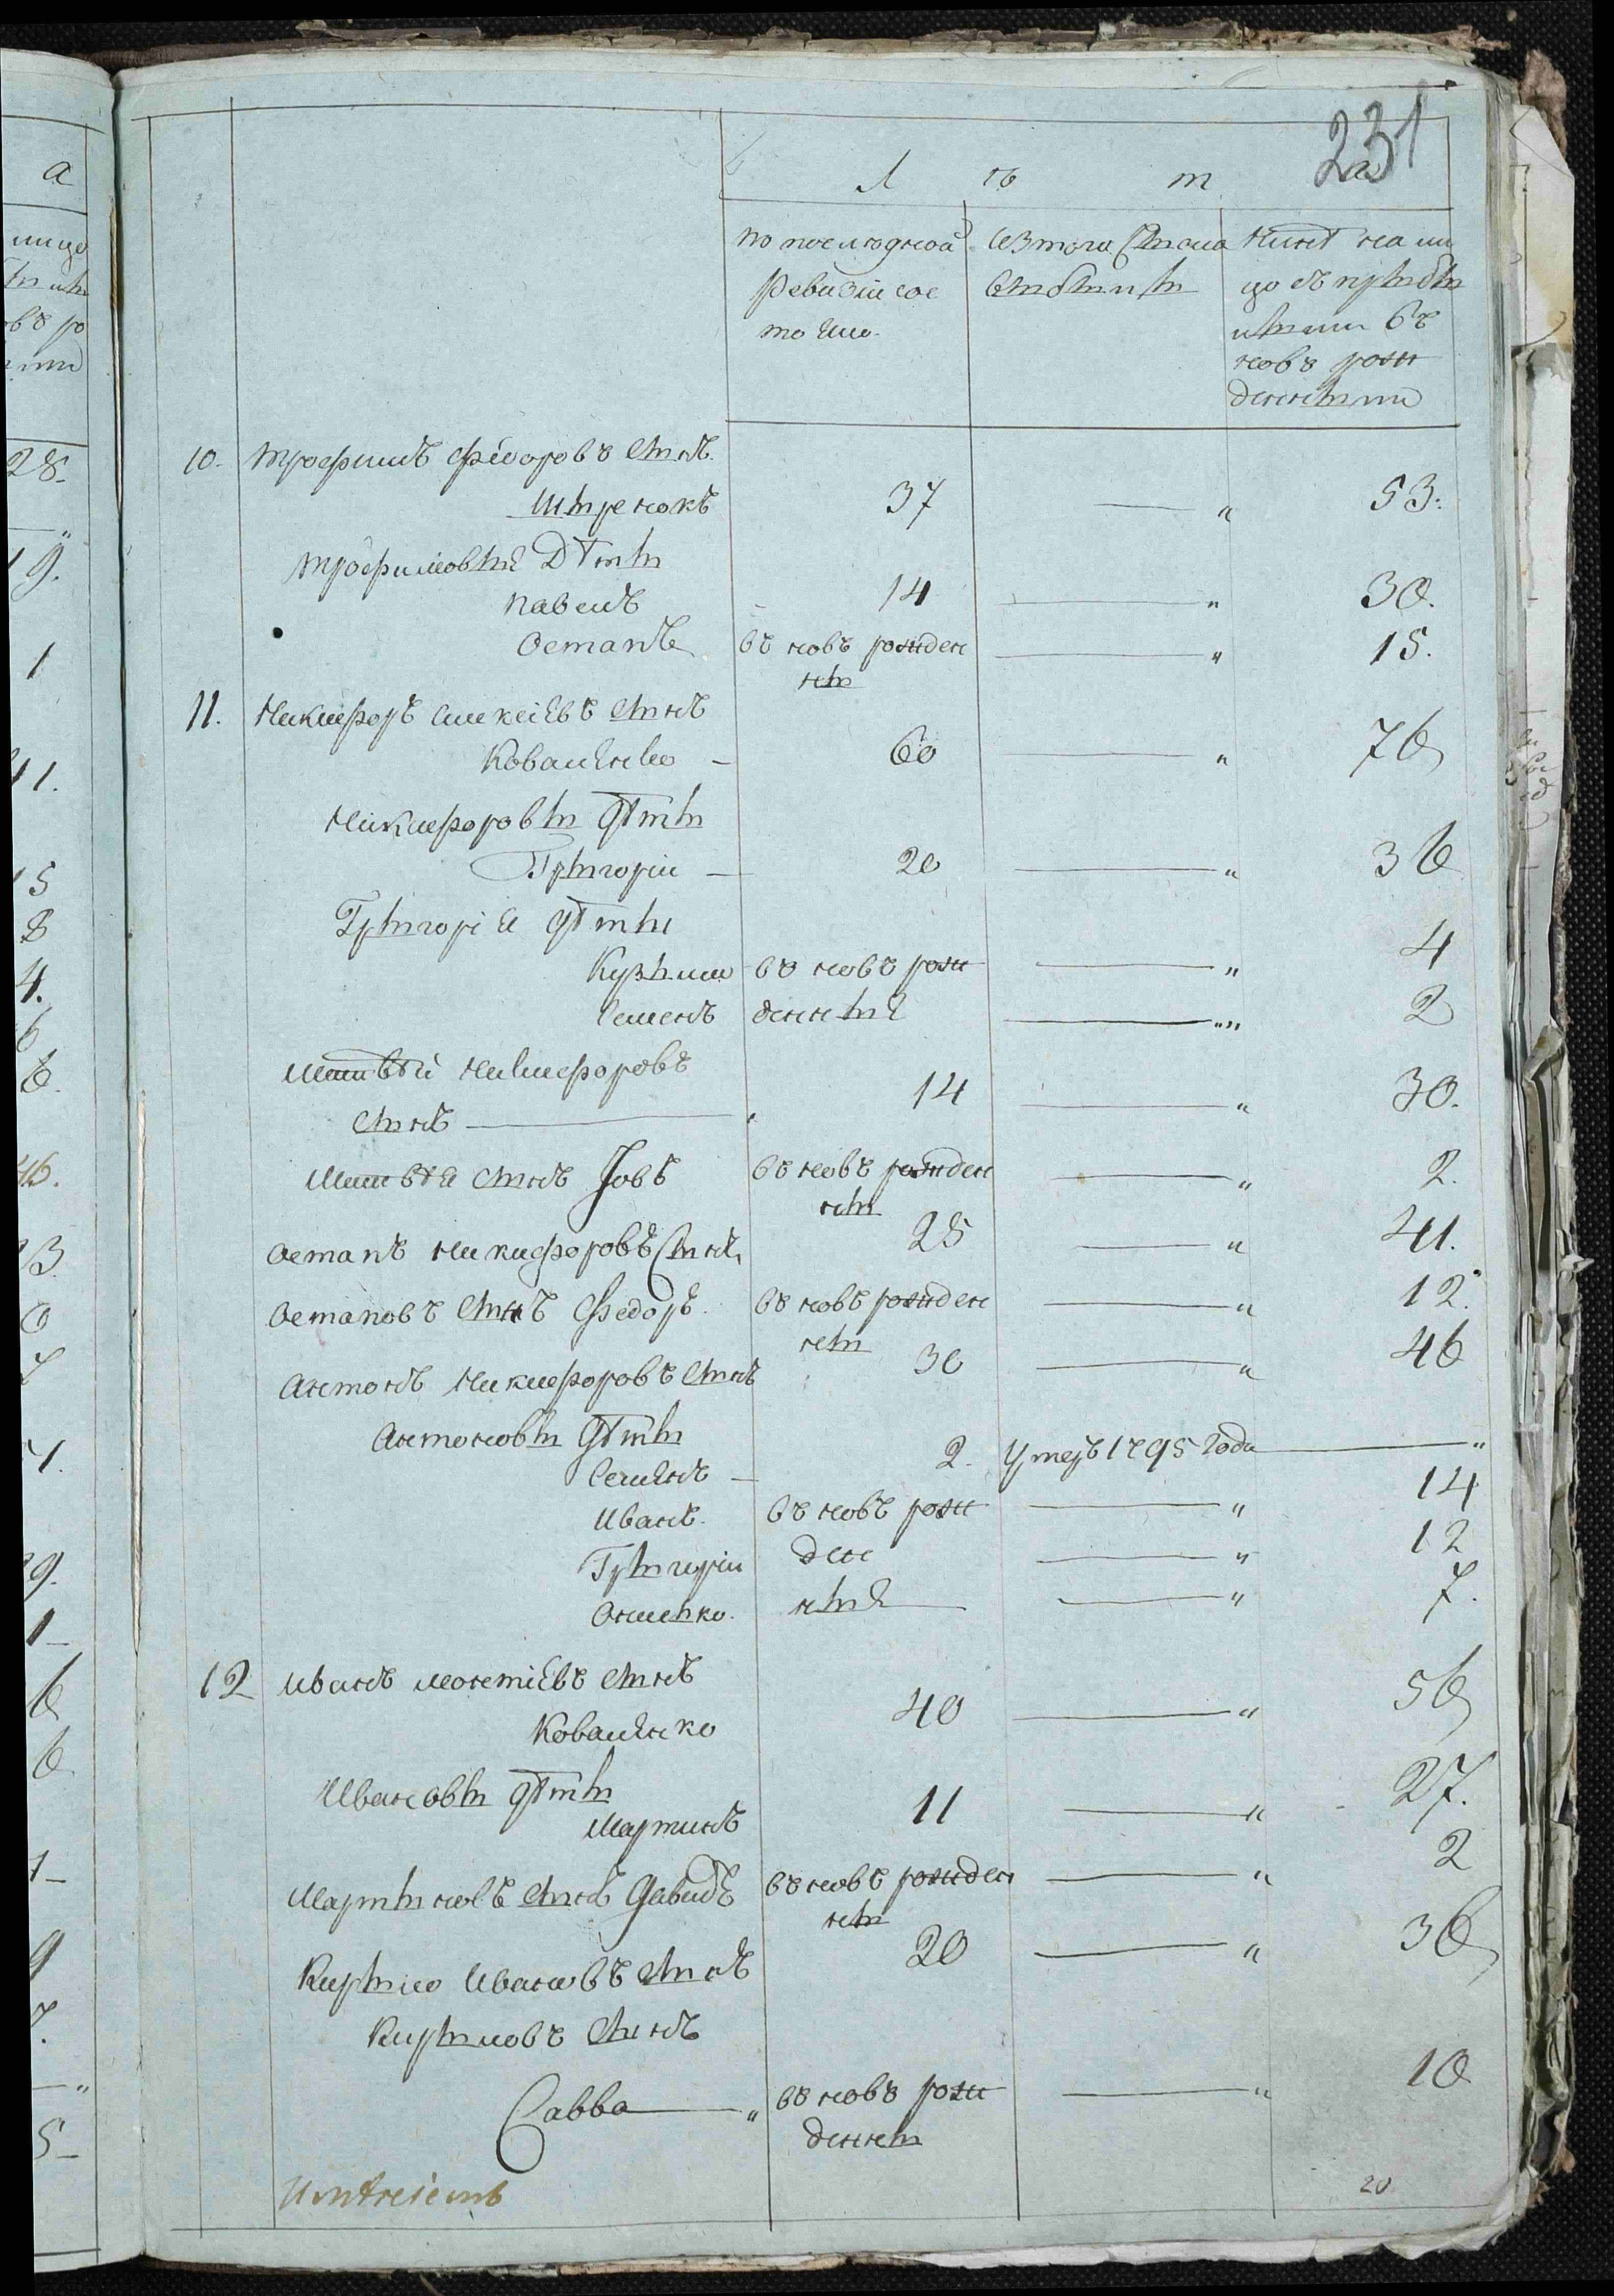 231
Л ѣ т а
по последной ревизіи состояло
изтого числа выбыли
ныне на лицо съ прибылыми въ новъ рожденными
10. Трофимъ Фёдоровъ сынъ
Штренокъ 37 — „ 53.
Трофимовые дѣти
Павелъ 14 — „ 30.
Остапъ въ новъ рожденны — „ 15.
11. Никифоръ Алексіевъ сынъ
Коваленко 60 — „ 76
Никифоровы дѣти
Григорій 20 — „ 36
Григоріе дѣти
Кузьма въ новъ рож — „ 4
Семенъ денные — „ 2
Матвѣй Никифоровъ
сынъ 14 — „ 30.
Матвѣе сынъ Іовъ въ новъ рожденны — „ 2.
Остапъ Никифоровъ сынъ 25 — „ 41.
Остаповъ сынъ Федоръ въ новъ рожденны — „ 12.
Антонъ Никифоровъ сынъ 30 — „ 46
Антоновы дѣти
Семенъ 2. умеръ 1795 года — „
Иванъ въ новъ рож — „ 14
Григорій ден — „ 12
ные — „ 7.
12 Иванъ сынъ
Коваленко 40 — „ 56
Ивановы дѣти
Мартинъ 11 — „ 27.
Мартыновъ сынъ Давидъ въ новъ рожденны — „ 2
Кирыло Ивановъ сынъ 20 — „ 36
Кирыловъ сынъ
Савва — „ въ новъ рожденны — „ 10
20